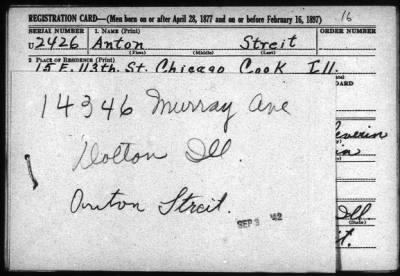 16
REGISTRATION CARD—(Men born on or after April 28, 1877 and on or before February 16, 1897)
SERIAL NUMBER 1. NAME (Print) ORDER NUMBER
U2426 Anton Streit
(First) (Middle) (Last)
2. PLACE OF RESIDENCE (Print)
15 E. 113th. St. Chicago Cook Ill.
14346 Murray Ave
Dolton Ill.
Anton Streit.
SEP 3 42
Ill.
(State)
St.